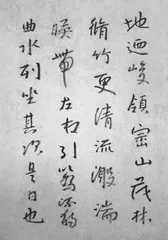 地迥峻領崇山茂林
脩竹更清流激湍
暎帶左右引
曲水列坐其次是日也